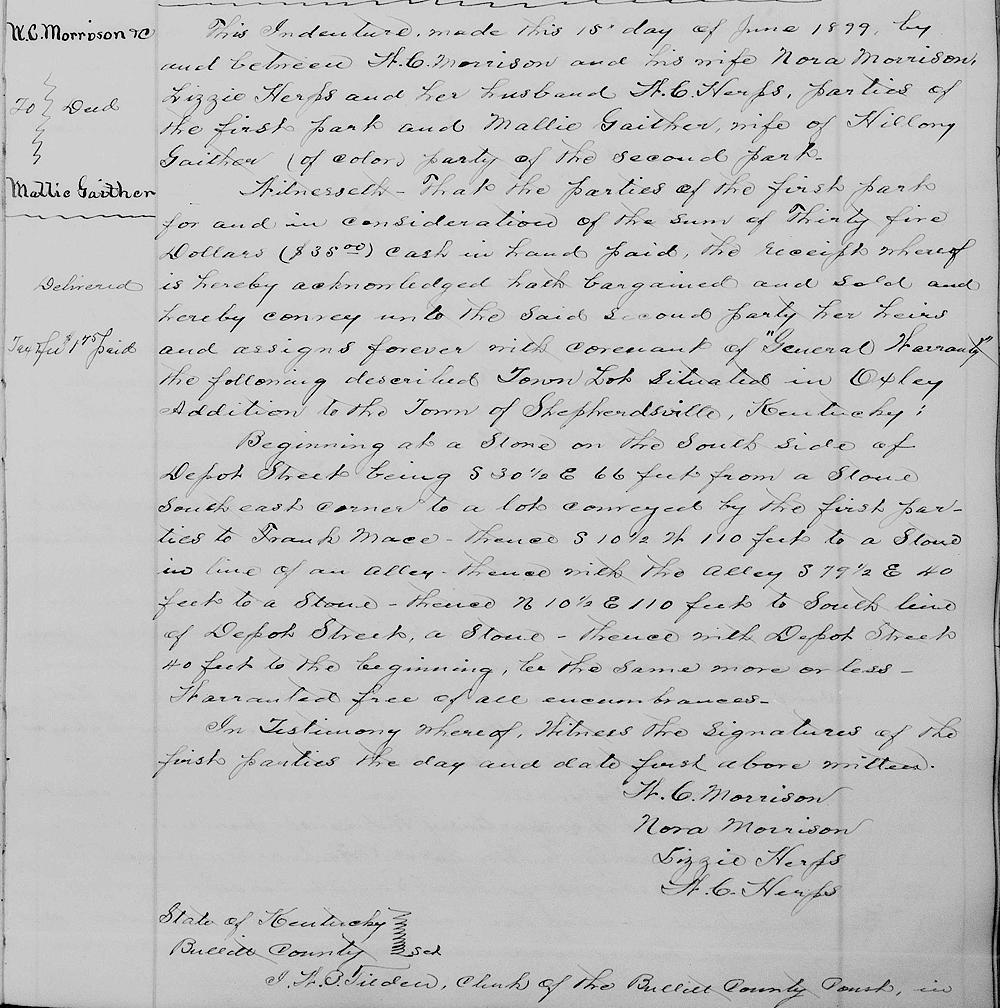 W.C. Morrison &C
To Deed
Mallie Gaither
Delivered
Tax & fee $1.75 paid
This Indenture, made this 15" day of June 1899, by
and between W.C. Morrison and his wife Nora Morrison,
Lizzie Herps and her husband W.C. Herps, parties of
the first part and Mallie Gaither, wife of Hillory
Gaither (of color) party of the second part-
Witnesseth- That the parties of the first part
for and in consideration of the sum of Thirty five
Dollars ($35 00) cash in hand paid, the receipt whereof
is hereby acknowledged hath bargained and sold and
hereby convey unto the said second party her heirs
and assigns forever with covenant of "General Warranty"
the following described Town Lot situated in Oxley
Addition to the Town of Shepherdsville, Kentucky;
Beginning at a Stone on the South side of
Depot Street being S 30½ E 66 feet from a Stone
South east corner to a lot conveyed by the first par-
ties to Frank Mace- thence S 10½ W 110 feet to a Stone
in line of an alley- thence with the Alley S 79½ E 40
feet to a Stone- thence N 10½ E 110 feet to South line
of Depot Street, a Stone- thence with Depot Street
40 feet to the beginning, be the same more or less-
Warranted free of all encumbrances-
In Testimony whereof, Witness the signatures of the
first parties the day and date first above written.
W.C. Morrison
Nora Morrison
Lizzie Herps
W.C. Herps
State of Kentucky
Bullitt County } Sct
I W.B. Tilden, Clerk of the Bullitt County Court, in